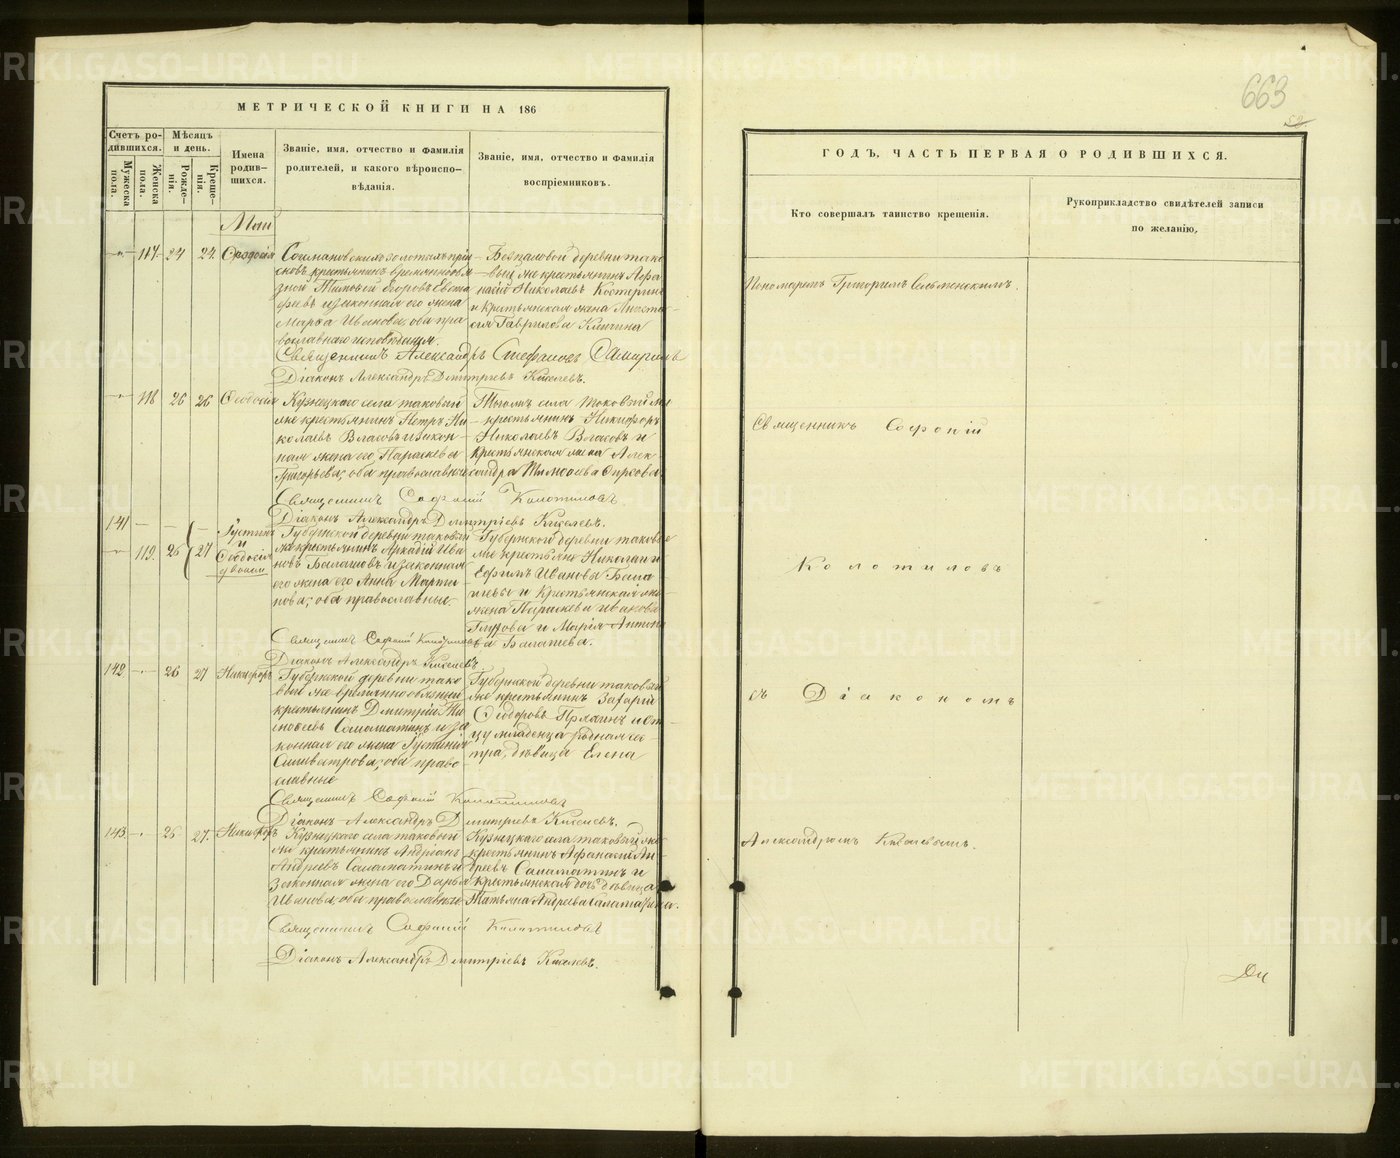 МЕТРИЧЕСКОЙ КНИГИ НА 186
Счетъ ро-
дившихся.
Мужеска
пола.
Женска
пола.
Мѣсяцъ
и день.
Рожде-
нія.
Креще-
нія.
Имена
родив-
шихся.
Званіе, имя, отчество и фамилія
родителей, и какого вѣроиспо-
вѣданія.
Званіе, имя, отчество и фамилія
воспріемниковъ.
Май
117. 24 24. Феодосія
золотыхъ пріи
сковъ крестьянинъ временнообя
занной Тимофей Егоровъ
и законная его жена
Марѳа Иванова, оба пра
вославнаго исповѣданія.
Безпаловой деревни тако
вый же крестьянинъ Аѳа
насій Николаевъ Костеринъ
и крестьянская жена Анаста
сія Гаврилова
Священникъ Александръ Стефановъ
Діаконъ Александръ Дмитріевъ Киселевъ.
118 26 26 Ѳеодосія
Кузнецкаго села таковый
же крестьянинъ Петръ Ни
колаевъ Власовъ и закон-
ная жена его Параскева
Григорьева; оба православные
села таковый же
крестьянинъ Никифоръ
Николаевъ Власовъ и
крестьянская жена Алек-
сандра Тимоѳеева Фирсова
Священникъ Софоній Колотиловъ
Діаконъ Александръ Дмитріевъ Киселевъ.
141
119. 26 27
Іустинъ
и
Ѳеодосія
двойни
Губернской деревни таковый
же крестьянинъ Аркадій Ива
новъ Балашовъ и законная
его жена его Анна Марты
нова; оба православные.
Губернской деревни таковые
же крестьяне Николай и
Ефимъ Ивановы Бала
и Крестьянскія
жена Параскева Иванова
и Марія Антоно
ва Балашева.
Священникъ Софоній Колотиловъ
Діаконъ Александръ Киселевъ
142 26 27 Никифоръ
Губернской деревни тако
вый же временно обязанный
крестьянинъ Дмитрій Ти
моѳеевъ Саломатинъ и за
конная его жена Іустинія
Силивестрова; оба право-
славные
Губернской деревни таковый
же крестьянинъ Захарій
Ѳеодоровъ Прягинъ и от
цу младенца родная се-
стра, дѣвица Елена
Священникъ Софоній Колотиловъ
Діаконъ Александръ Дмитріевъ Киселевъ.
143 25 27. Никифоръ
Кузнецкаго села таковый
же крестьянинъ Андріанъ
Андреевъ Саламатинъ и
Законная жена его Дарья
Иванова, оба православные
Кузнецкаго села таковый же
крестьянинъ Аѳанасій Ан
дреевъ Саламатинъ и
Крестьянская дочь дѣвица
Татьяна Андреева Саламатина.
Священникъ Софоній Колотиловъ
Діаконъ Александръ Дмитріевъ Киселевъ.
663
52.
ГОДЪ, ЧАСТЬ ПЕРВАЯ О РОДИВШИХСЯ.
Кто совершалъ таинство крещенія.
Рукоприкладство свидѣтелей записи
по желанію.
Пономаремъ Григоріемъ Сельменскимъ.
Священникъ Софоній
Колотиловъ
съ Діакономъ
Александромъ Киселевымъ.
Ди
METRIKI.GASO-URAL.RU